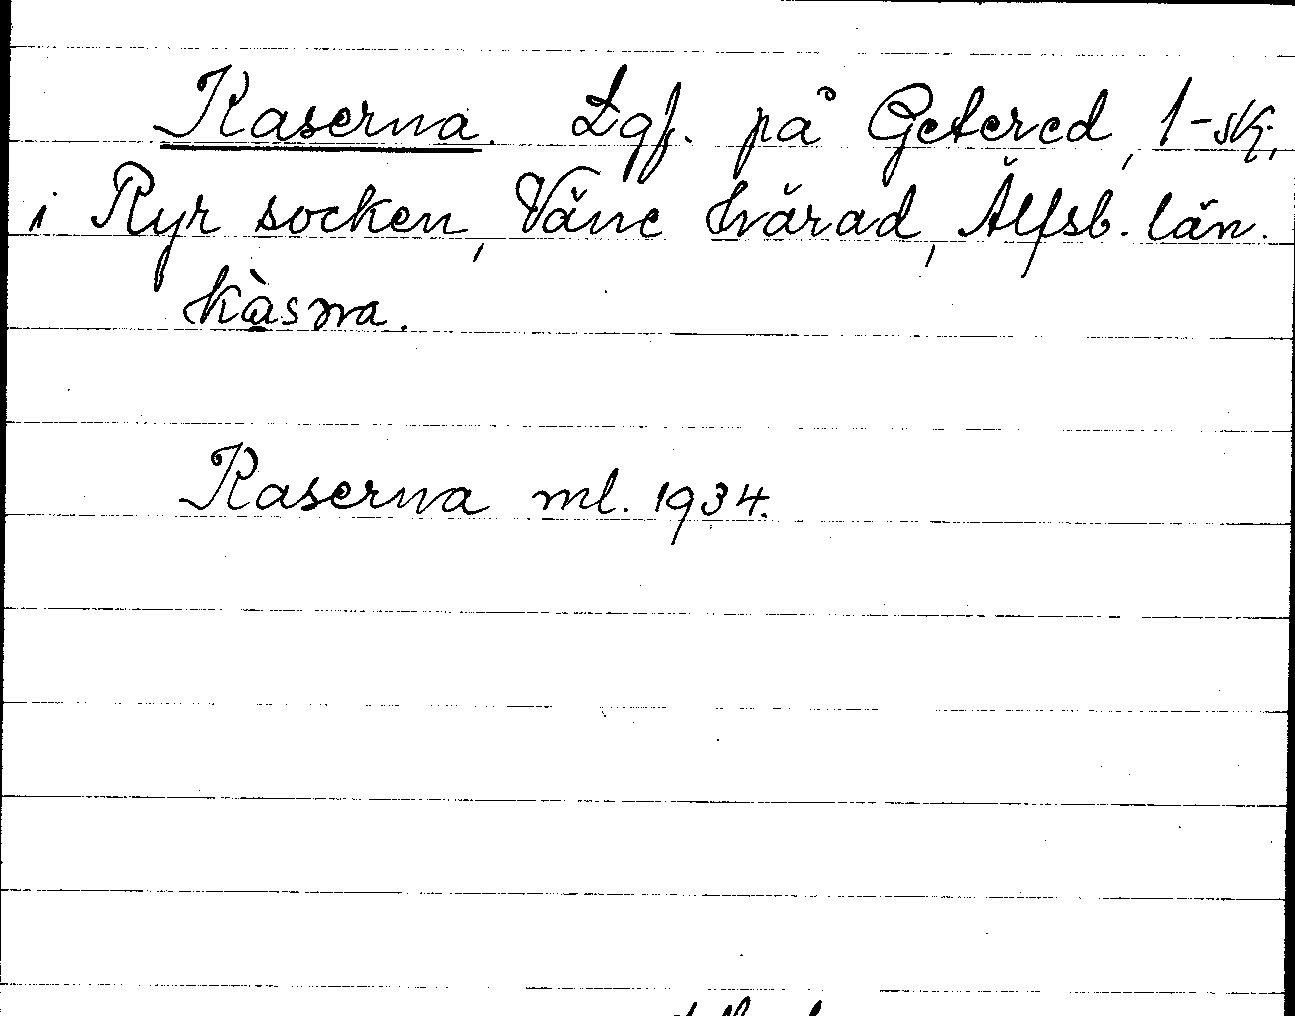 Kaserna. Lgf. på Getered, 1-sk;
i Ryr socken, Väne härad, Älfsb. län.
kàsṇa.
Kaserna ml. 1934.